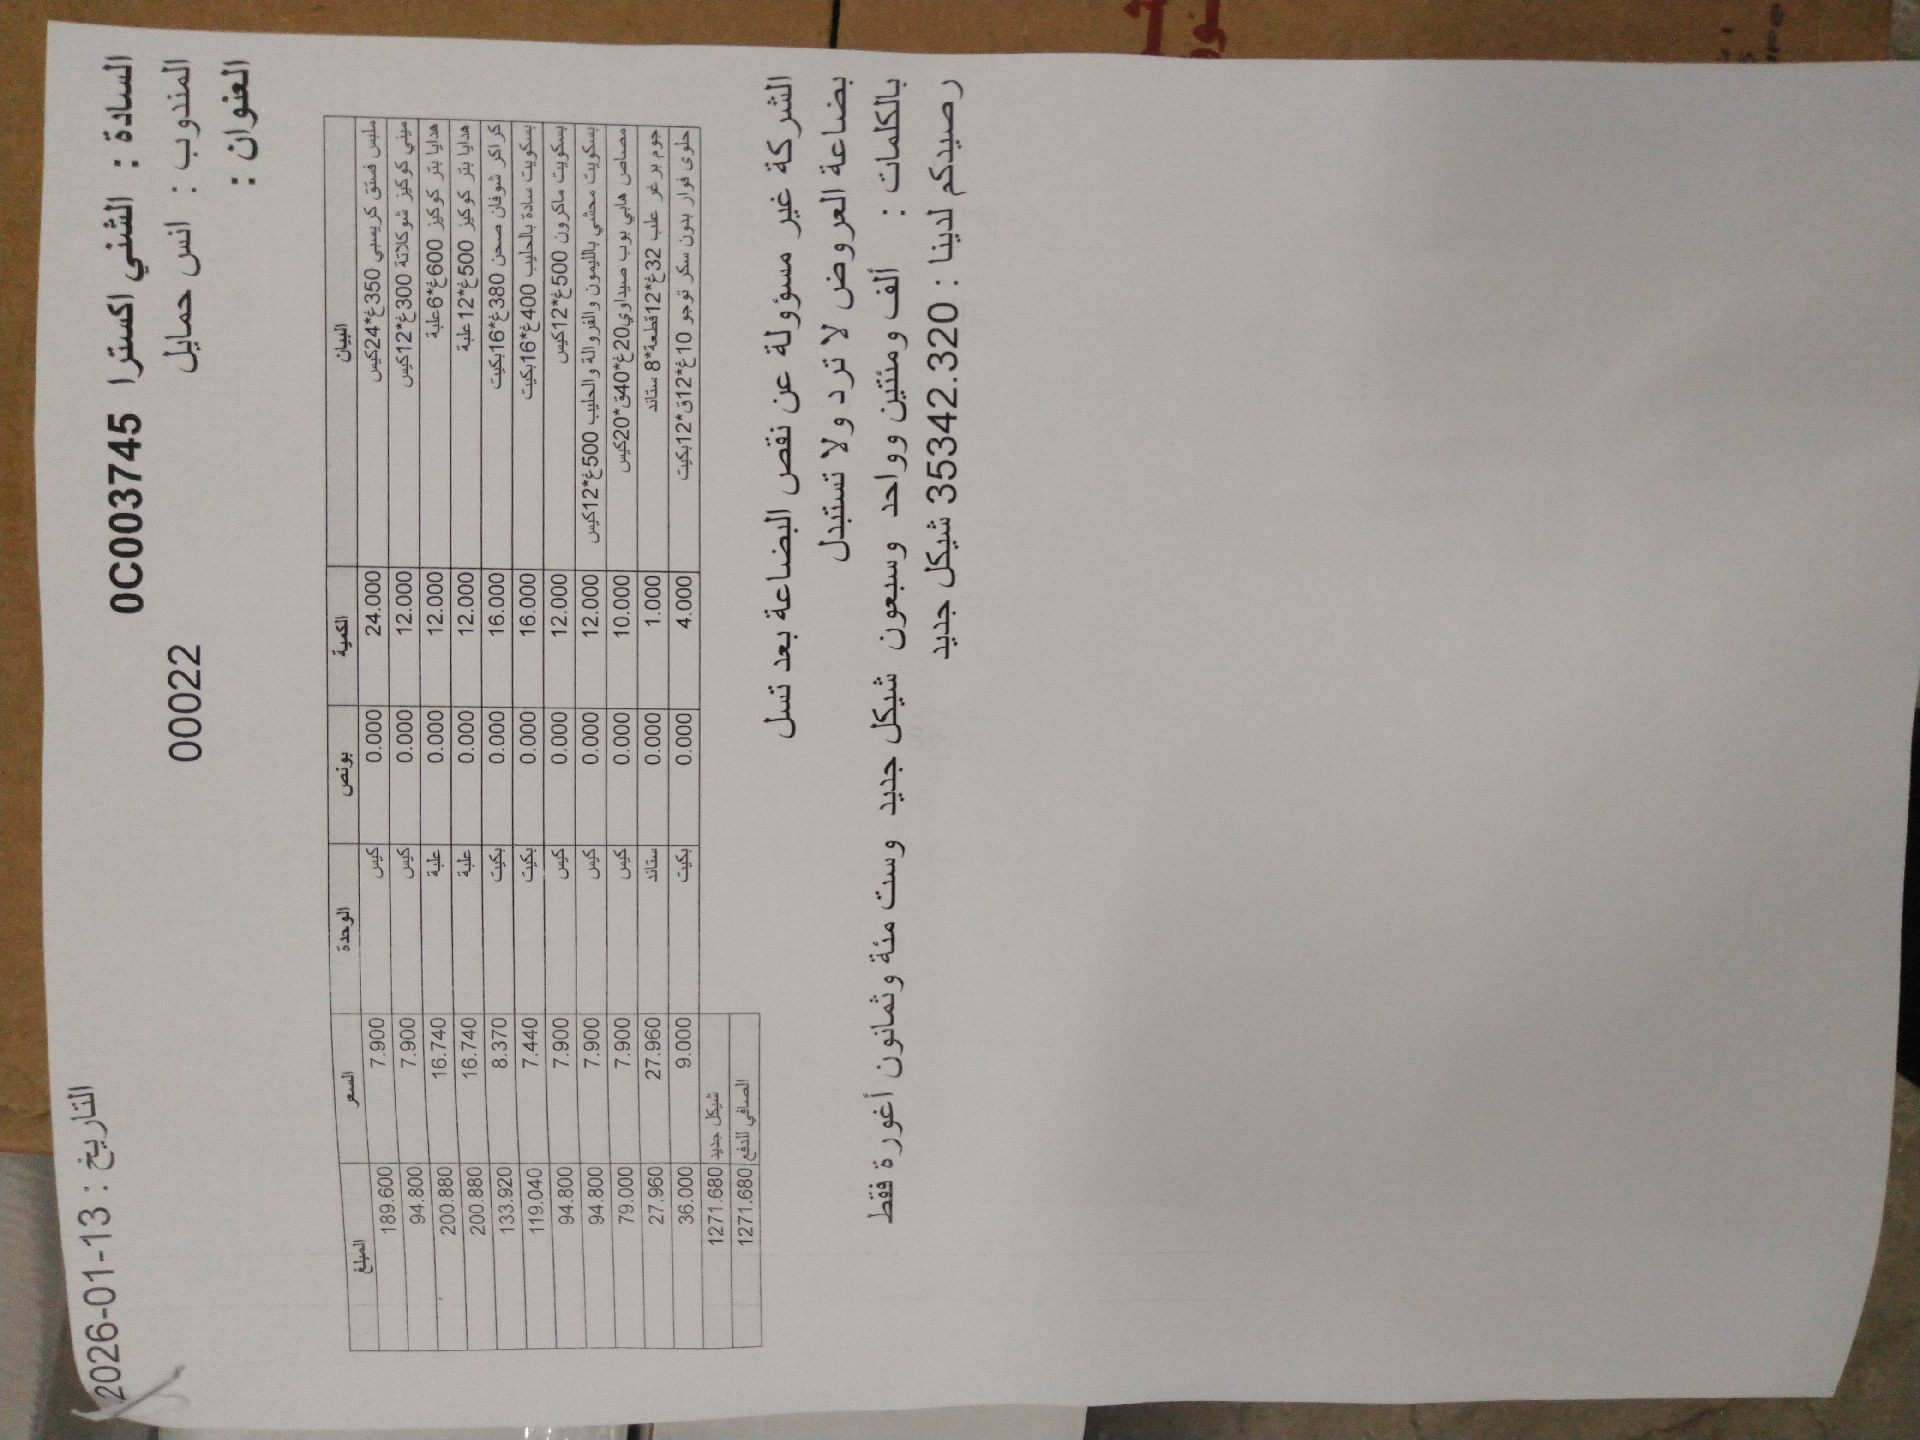 التاريخ : 2026-01-13
السادة : الشني اكسترا 0C003745
المندوب : انس حمايل 00022
العنوان :
البيان الكمية بونص الوحدة السعر المبلغ
ملبس فستق كريسبي 350غ*24كيس 24.000 0.000 كيس 7.900 189.600
ميني كوكيز شوكلاتة 300غ*12كيس 12.000 0.000 كيس 7.900 94.800
هدايا بتر كوكيز 600غ*6علبة 12.000 0.000 علبة 16.740 200.880
هدايا بتر كوكيز 500غ*12علبة 12.000 0.000 علبة 16.740 200.880
كراكر شوفان صحن 380غ*16بكيت 16.000 0.000 بكيت 8.370 133.920
بسكويت سادة بالحليب 400غ*16بكيت 16.000 0.000 بكيت 7.440 119.040
بسكويت ماكرون 500غ*12كيس 12.000 0.000 كيس 7.900 94.800
بسكويت محشي بالليمون والفروالة والحليب 500غ*12كيس 12.000 0.000 كيس 7.900 94.800
مصاص هابي بوب صيداوي20غ*40ق*20كيس 10.000 0.000 كيس 7.900 79.000
جوم برغر علب 32غ*12قطعة*8 ستاند 1.000 0.000 ستاند 27.960 27.960
حلوى فوار بدون سكر توجو 10غ*12ق*12بكيت 4.000 0.000 بكيت 9.000 36.000
شيكل جديد 1271.680
الصافي للدفع 1271.680
الشركة غير مسؤولة عن نقص البضاعة بعد تسل
بضاعة العروض لا ترد ولا تستبدل
بالكلمات : ألف ومئتين وواحد وسبعون شيكل جديد وست مئة وثمانون أغورة فقط
رصيدكم لدينا : 35342.320 شيكل جديد